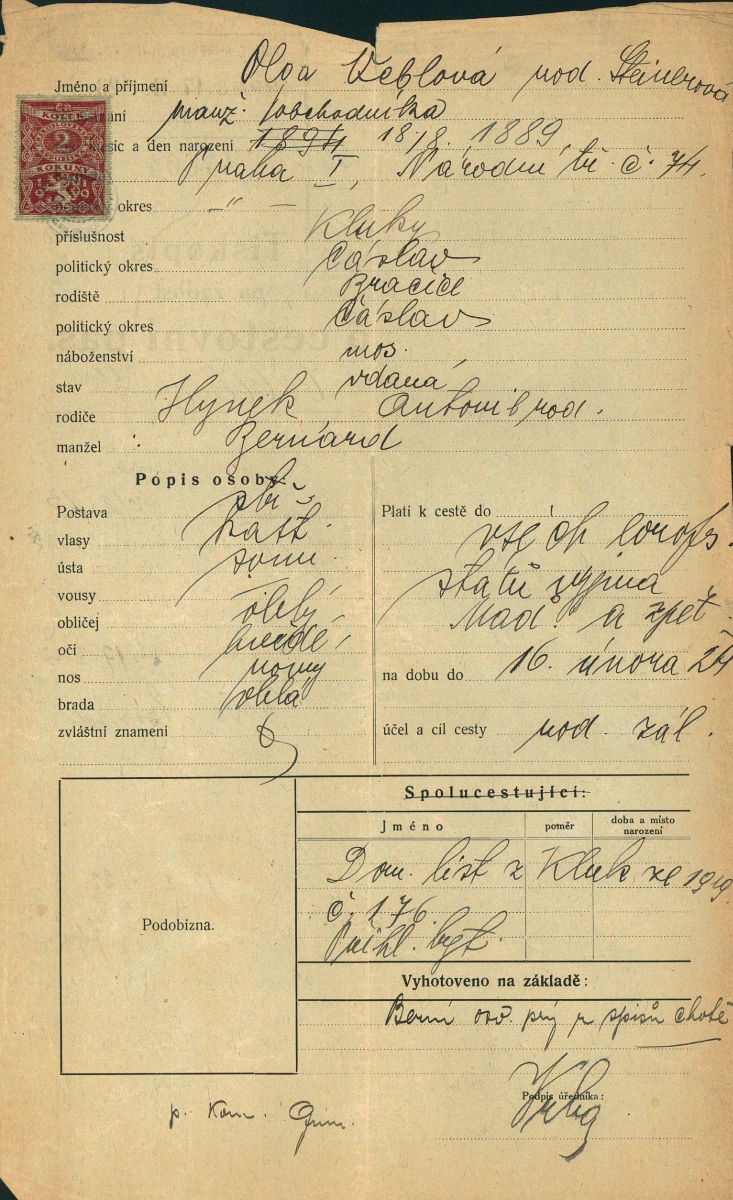 Jméno a příjmení Olga Veblová rod. Steinerová
manž. obchodníka
KOLEK
2
KORUNY
1919
měsíc a den narození 1894 18/8. 1889.
Praha I, Národní tř. č. 74.
okres —"—
příslušnost Kluky
politický okres Čáslav
rodiště Bračice
politický okres Čáslav
náboženství mos.
stav vdaná
rodiče Hynek Antonie rod.
manžel Bernard
Popis osoby.
Postava
vlasy kašt.
ústa soum.
vousy —
obličej oblý
oči hnědé
nos rovný
brada oblá
zvláštní znamení
Platí k cestě do
všech evrops.
států vyjma
Maď. a zpět.
na dobu do 16. února 24
účel a cíl cesty rod. zál.
Podobizna.
Spolucestující:
Jméno
poměr
doba a místo narození
Dom. list z Kluk ze 1919
č. 176.
Přihl. byt.
Vyhotoveno na základě:
Berní osv. při spisů chotě
Podpis úředníka:
p. Kom.